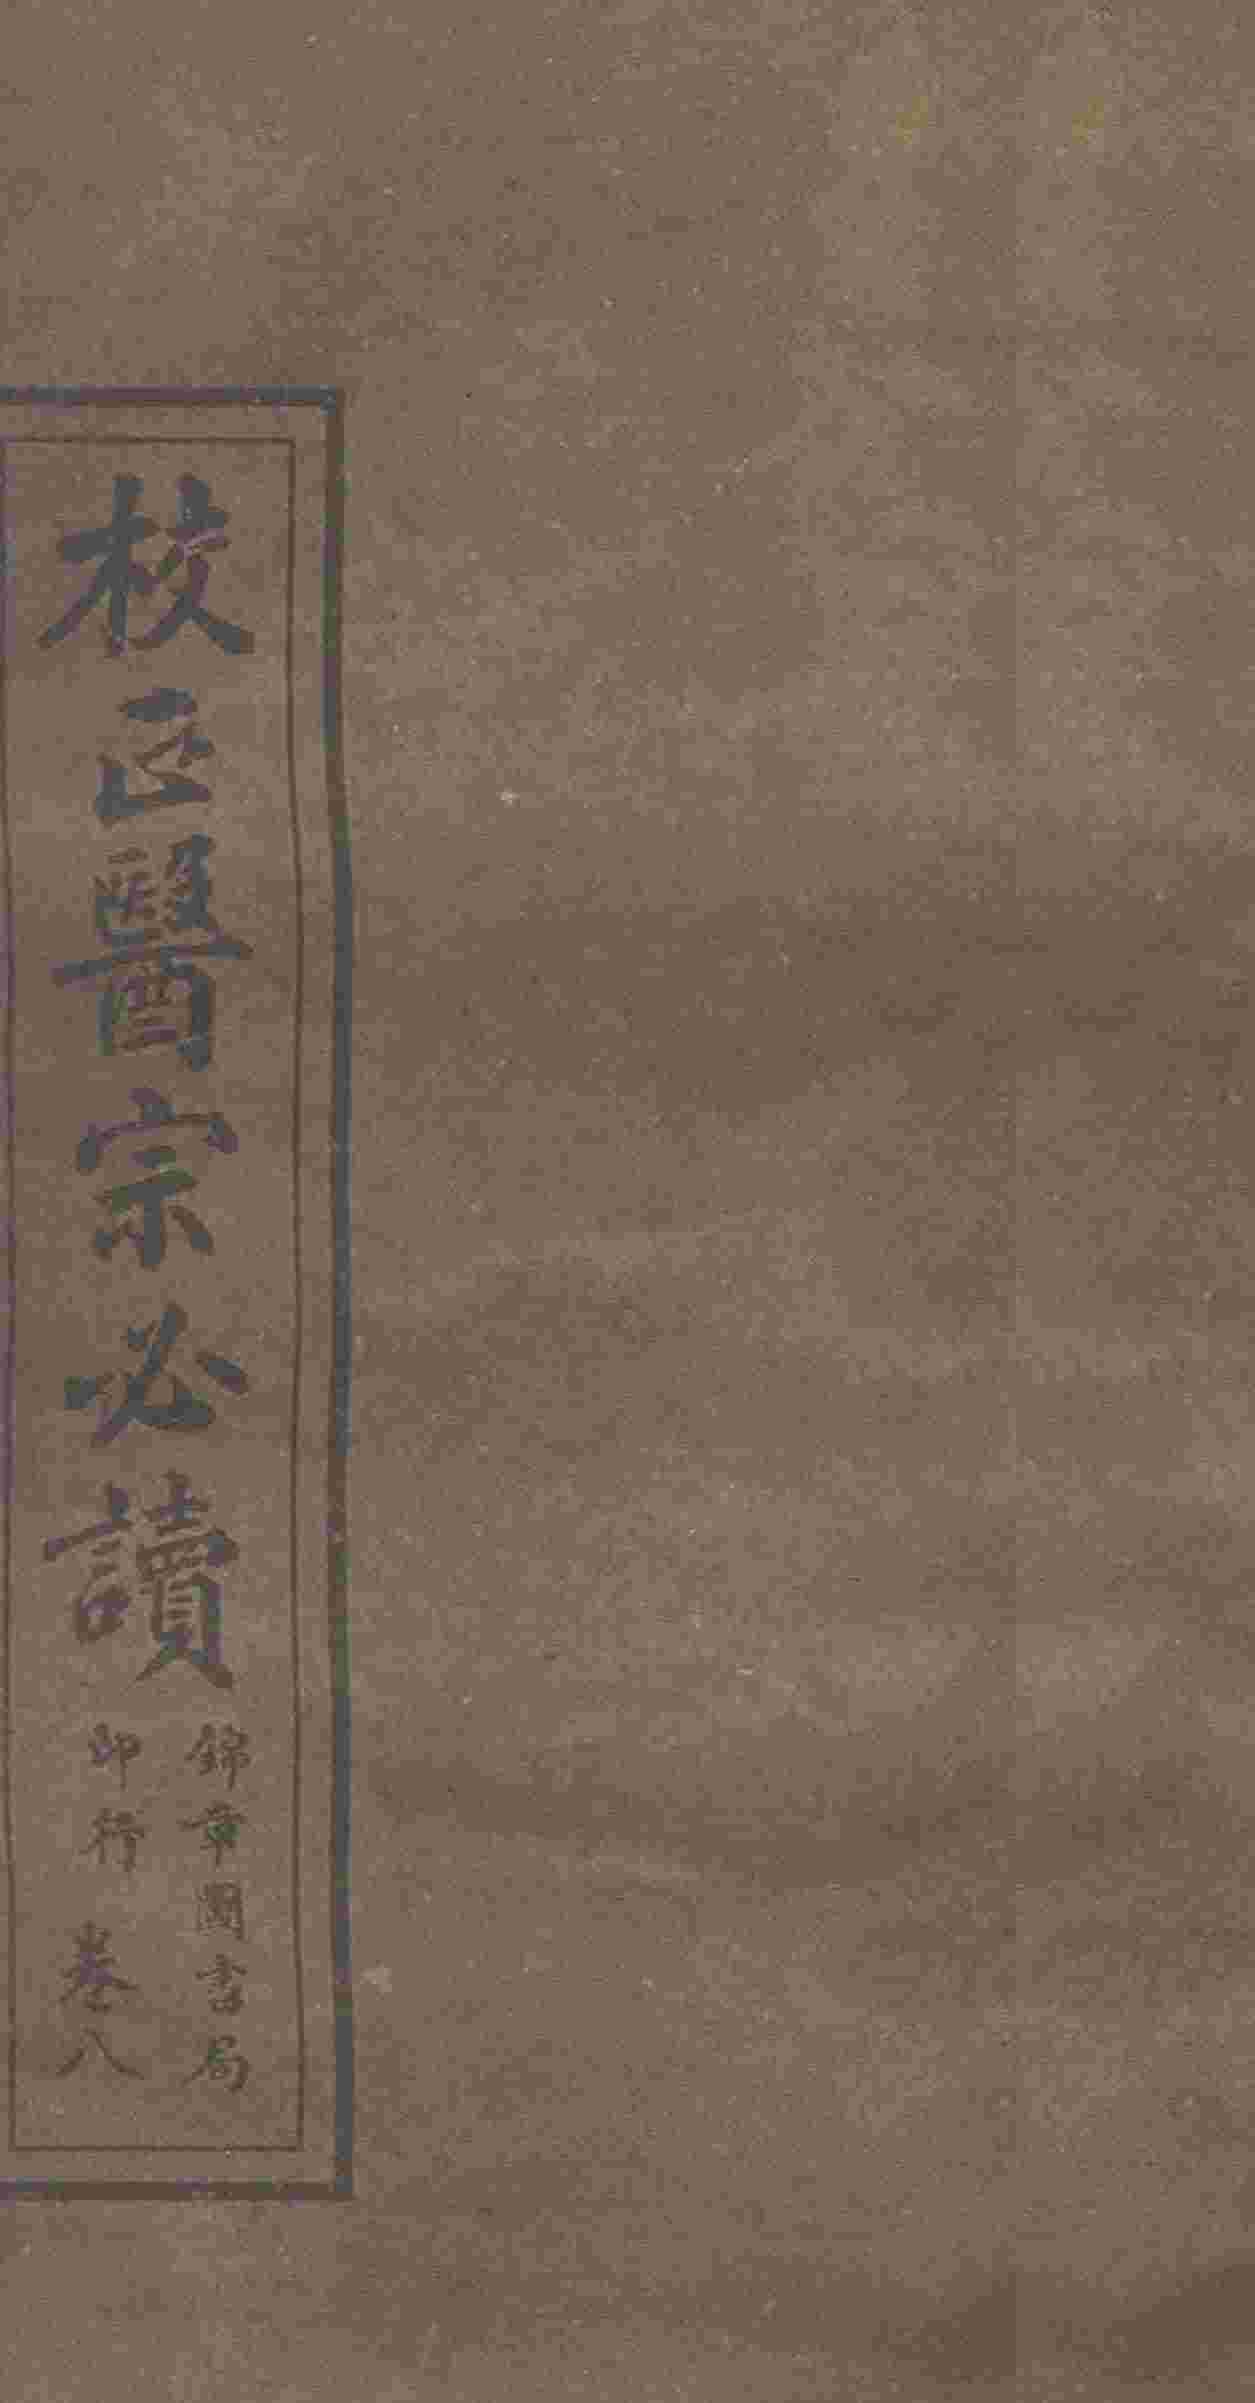 校正醫宗必讀
錦章圖書局
印行 卷八